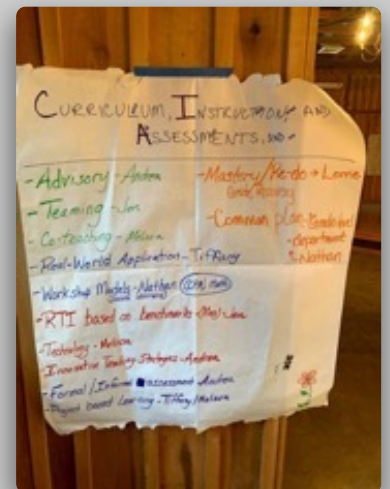 CURRICULUM, INSTRUCTION, AND
ASSESSMENTS,
-Advisory - Andrea
-Teaming - Jen
-Co-teaching - Melissa
-Real-World Application - Tiffany
-Workshop Models - Nathan
-RTI based on benchmarks Jen
-Technology - Melissa
-Innovative Teaching Strategies - Andrea
-Formal/Informal assessment - Andrea
-Project based Learning - Tiffany/Melissa
-Mastery/Re-do →
-Common plan - Grade level
-department
Nathan